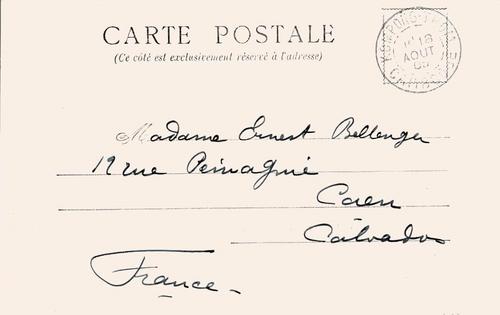 CARTE POSTALE
(Ce côté est exclusivement réservé à l'adresse)
KOMPONG-THOM
18
AOUT
CAMBODGE
Madame Ernest Bellenger
12 rue
Caen
Calvados
France